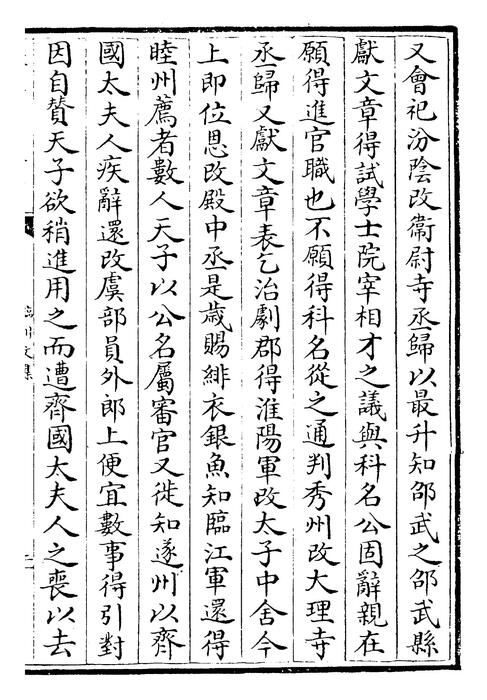 又會祀汾陰改衞尉寺丞歸以最升知邵武之邵武縣
獻文章得試學士院宰相才之議與科名公固辭親在
願得進官職也不願得科名從之通判秀州改大理寺
丞歸又獻文章表乞治劇郡得淮陽軍改太子中舍今
上即位恩改殿中丞是歲賜緋衣銀魚知臨江軍還得
睦州薦者數人天子以公名屬審官又徙知遂州以齊
國太夫人疾辭還改虞部員外郎上便宜數事得引對
因自贊天子欲稍進用之而遭齊國太夫人之喪以去
臨川文集